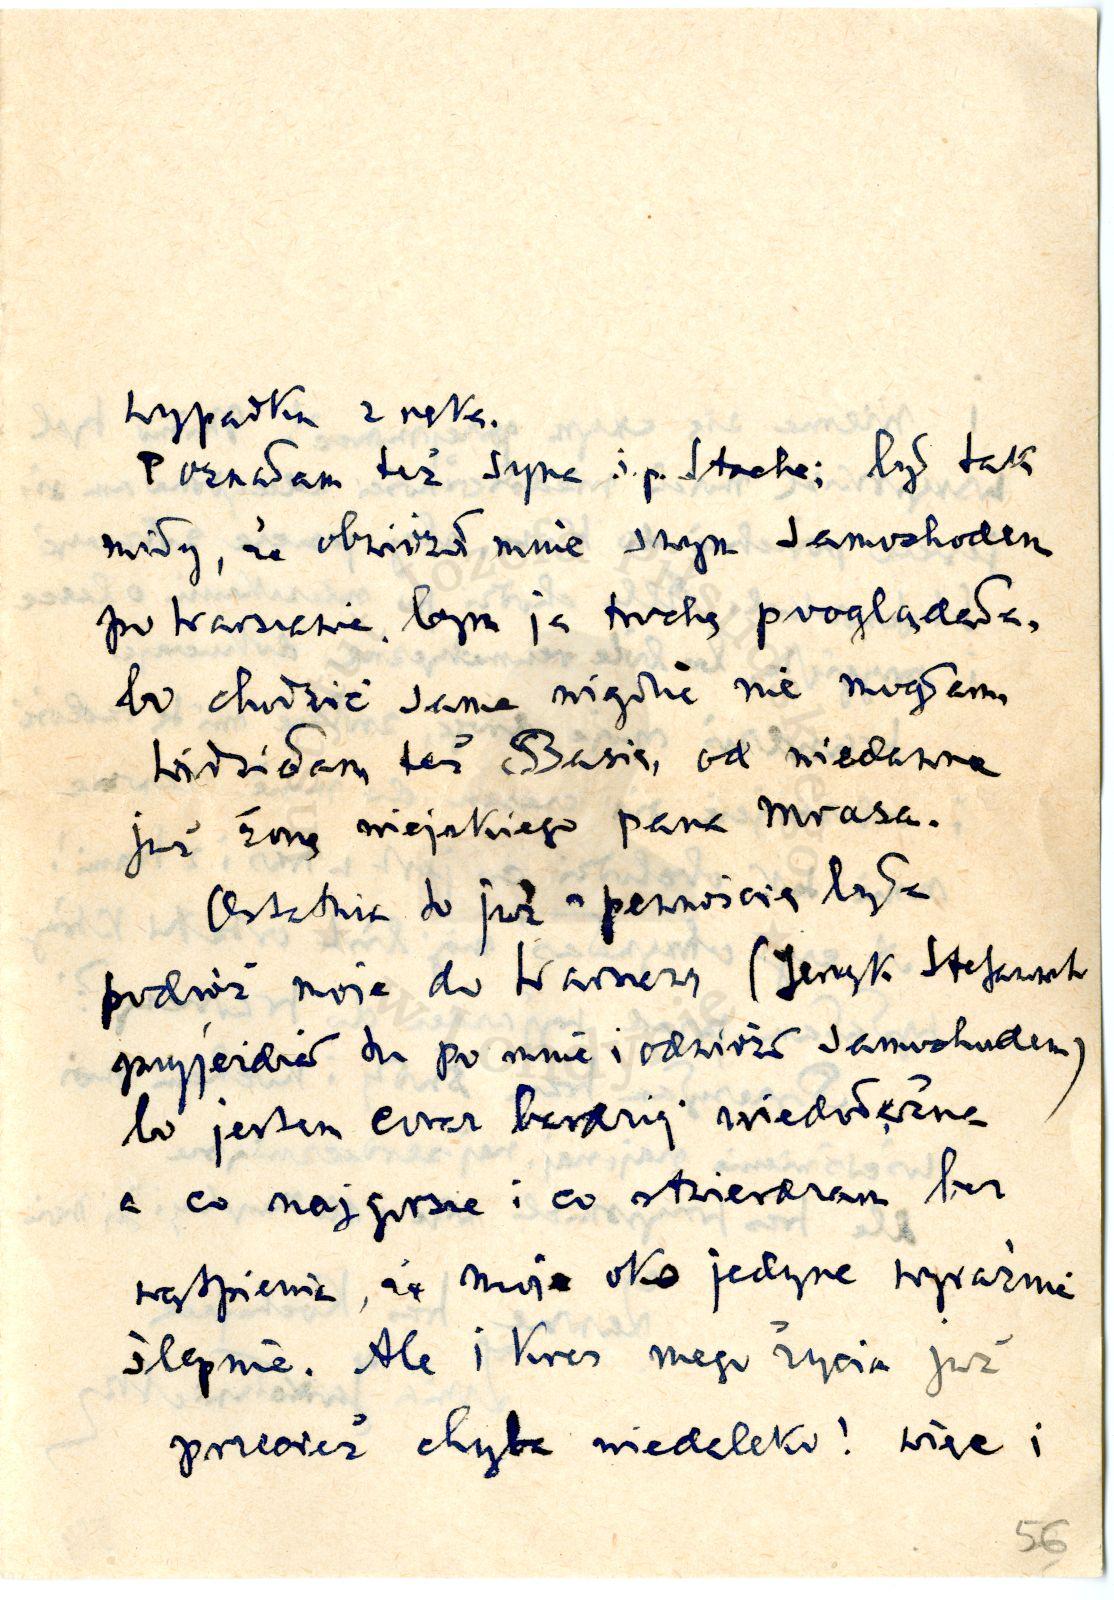 wypadku z ręką.
Poznałam też syna ś.p. Stacha; był tak
miły, że obwiózł mnie swym samochodem
po Warszawie, bym ja trochę pooglądała,
bo chodzić sama nigdzie nie mogłam
Widziałam też Basię, od niedawna
już żonę niejakiego pana Mrasa.
Ostatnia to już z pewnością była
podróż moja do Warszawy (Jerzyk
przyjeżdżał tu po mnie i odwiózł samochodem)
bo jestem coraz bardziej niedołężna
a co najgorsze i co stwierdzam bez
wątpienia, że moje oko jedyne wyraźnie
ślepnie. Ale i kres mego życia już
przecież chyba niedaleko! więc i
56